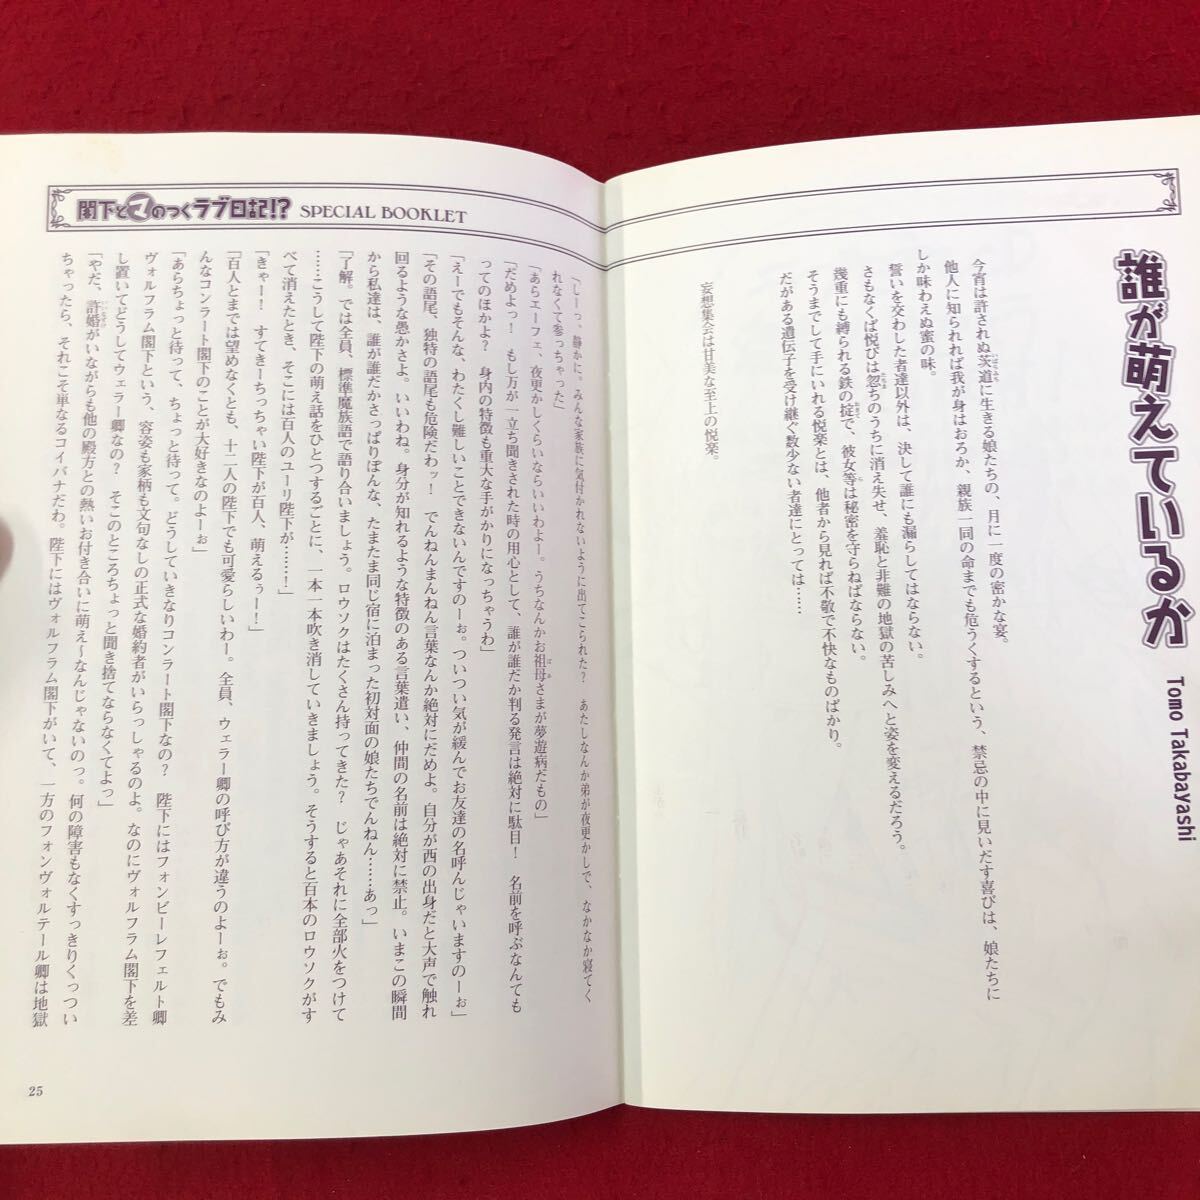 誰が萌えているか
Tomo Takabayashi
今宵は許されぬ茨道に生きる娘たちの、月に一度の密かな宴。
他人に知られれば我が身はおろか、親族一同の命までも危うくするという、禁忌の中に見いだす喜びは、娘たちに
しか味わえぬ蜜の味。
誓いを交わした者達以外は、決して誰にも漏らしてはならない。
さもなくば悦びは忽ちのうちに消え失せ、羞恥と非難の地獄の苦しみへと姿を変えるだろう。
幾重にも縛られる鉄の掟で、彼女等は秘密を守らねばならない。
そうまでして手にいれる悦楽とは、他者から見れば不敬で不快なものばかり。
だがある遺伝子を受け継ぐ数少ない者達にとっては……
妄想集会は甘美な至上の悦楽。
閣下とマのつくラブ日記!? SPECIAL BOOKLET
「しーっ、静かに。みんな家族に気付かれないように出てこられた？　あたしなんか弟が夜更かしで、なかなか寝てく
れなくて参っちゃった」
「あらエーフェ、夜更かしくらいならいいわよー。うちなんかお祖母さまが夢遊病だもの」
「だめよっ！　もし万が一立ち聞きされた時の用心として、誰が誰だか判る発言は絶対に駄目！　名前を呼ぶなんても
ってのほかよ？　身内の特徴も重大な手がかりになっちゃうわ」
「えーでもそんな、わたくし難しいことできないんですのーぉ。ついつい気が緩んでお友達の名呼んじゃいますのーぉ」
「その語尾、独特の語尾も危険だわッ！　でんねんまんねん言葉なんか絶対にだめよ。自分が西の出身だと大声で触れ
回るような愚かさよ。いいわね。身分が知れるような特徴のある言葉遣い、仲間の名前は絶対に禁止。いまこの瞬間
から私達は、誰が誰だかさっぱりぽんな、たまたま同じ宿に泊まった初対面の娘たちでんねん……あっ」
「了解。では全員、標準魔族語で語り合いましょう。ロウソクはたくさん持ってきた？　じゃあそれに全部火をつけて
……こうして陛下の萌え話をひとつするごとに、一本一本吹き消していきましょう。そうすると百本のロウソクがす
べて消えたとき、そこには百人のユーリ陛下が……！」
「きゃー！　すてきーちっちゃい陛下が百人、萌えるぅー！」
「百人とまでは望めなくとも、十二人の陛下でも可愛らしいわー。全員、ウェラー卿の呼び方が違うのよーぉ。でもみ
んなコンラート閣下のことが大好きなのよーぉ」
「あらちょっと待って、ちょっと待って。どうしていきなりコンラート閣下なの？　陛下にはフォンビーレフェルト卿
ヴォルフラム閣下という、容姿も家柄も文句なしの正式な婚約者がいらっしゃるのよ。なのにヴォルフラム閣下を差
し置いてどうしてウェラー卿なの？　そこのところちょっと聞き捨てならなくてよっ」
「やだ、許婚がいながらも他の殿方との熱いお付き合いに萌え～なんじゃないのっ。何の障害もなくすっきりくっつい
ちゃったら、それこそ単なるコイバナだわ。陛下にはヴォルフラム閣下がいて、一方のフォンヴォルテール卿は地獄
25